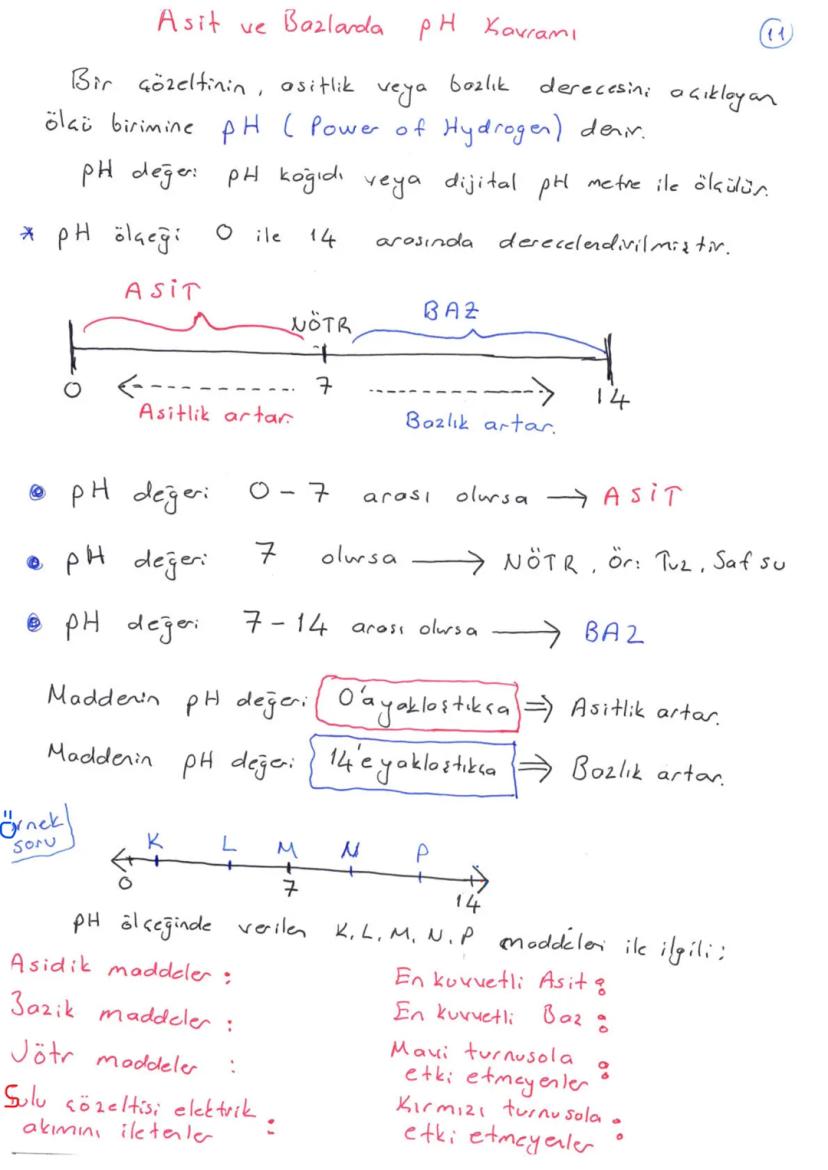 Asit ve Bazlarda pH Kavramı
11
Bir çözeltinin, asitlik veya bazlık derecesini açıklayan
ölçü birimine pH (Power of Hydrogen) denir.
pH değeri pH kağıdı veya dijital pH metre ile ölçülür.
* pH ölçeği 0 ile 14 arasında derecelendirilmiştir.
ASİT NÖTR BAZ
0 7 14
Asitlik artar. Bazlık artar.
pH değeri 0-7 arası olursa → ASİT
pH değeri 7 olursa → NÖTR, Ör: Tuz, Saf su
pH değeri 7-14 arası olursa → BAZ
Maddenin pH değeri 0'a yaklaştıkça ⇒ Asitlik artar.
Maddenin pH değeri 14'e yaklaştıkça ⇒ Bazlık artar.
Örnek
soru
K L M N P
0 7 14
pH ölçeğinde verilen K, L, M, N, P maddeleri ile ilgili;
Asidik maddeler :
Bazik maddeler :
Nötr maddeler :
Sulu çözeltisi elektrik
akımını iletenler :
En kuvvetli Asit :
En kuvvetli Baz :
Mavi turnusola
etki etmeyenler :
Kırmızı turnusola
etki etmeyenler :